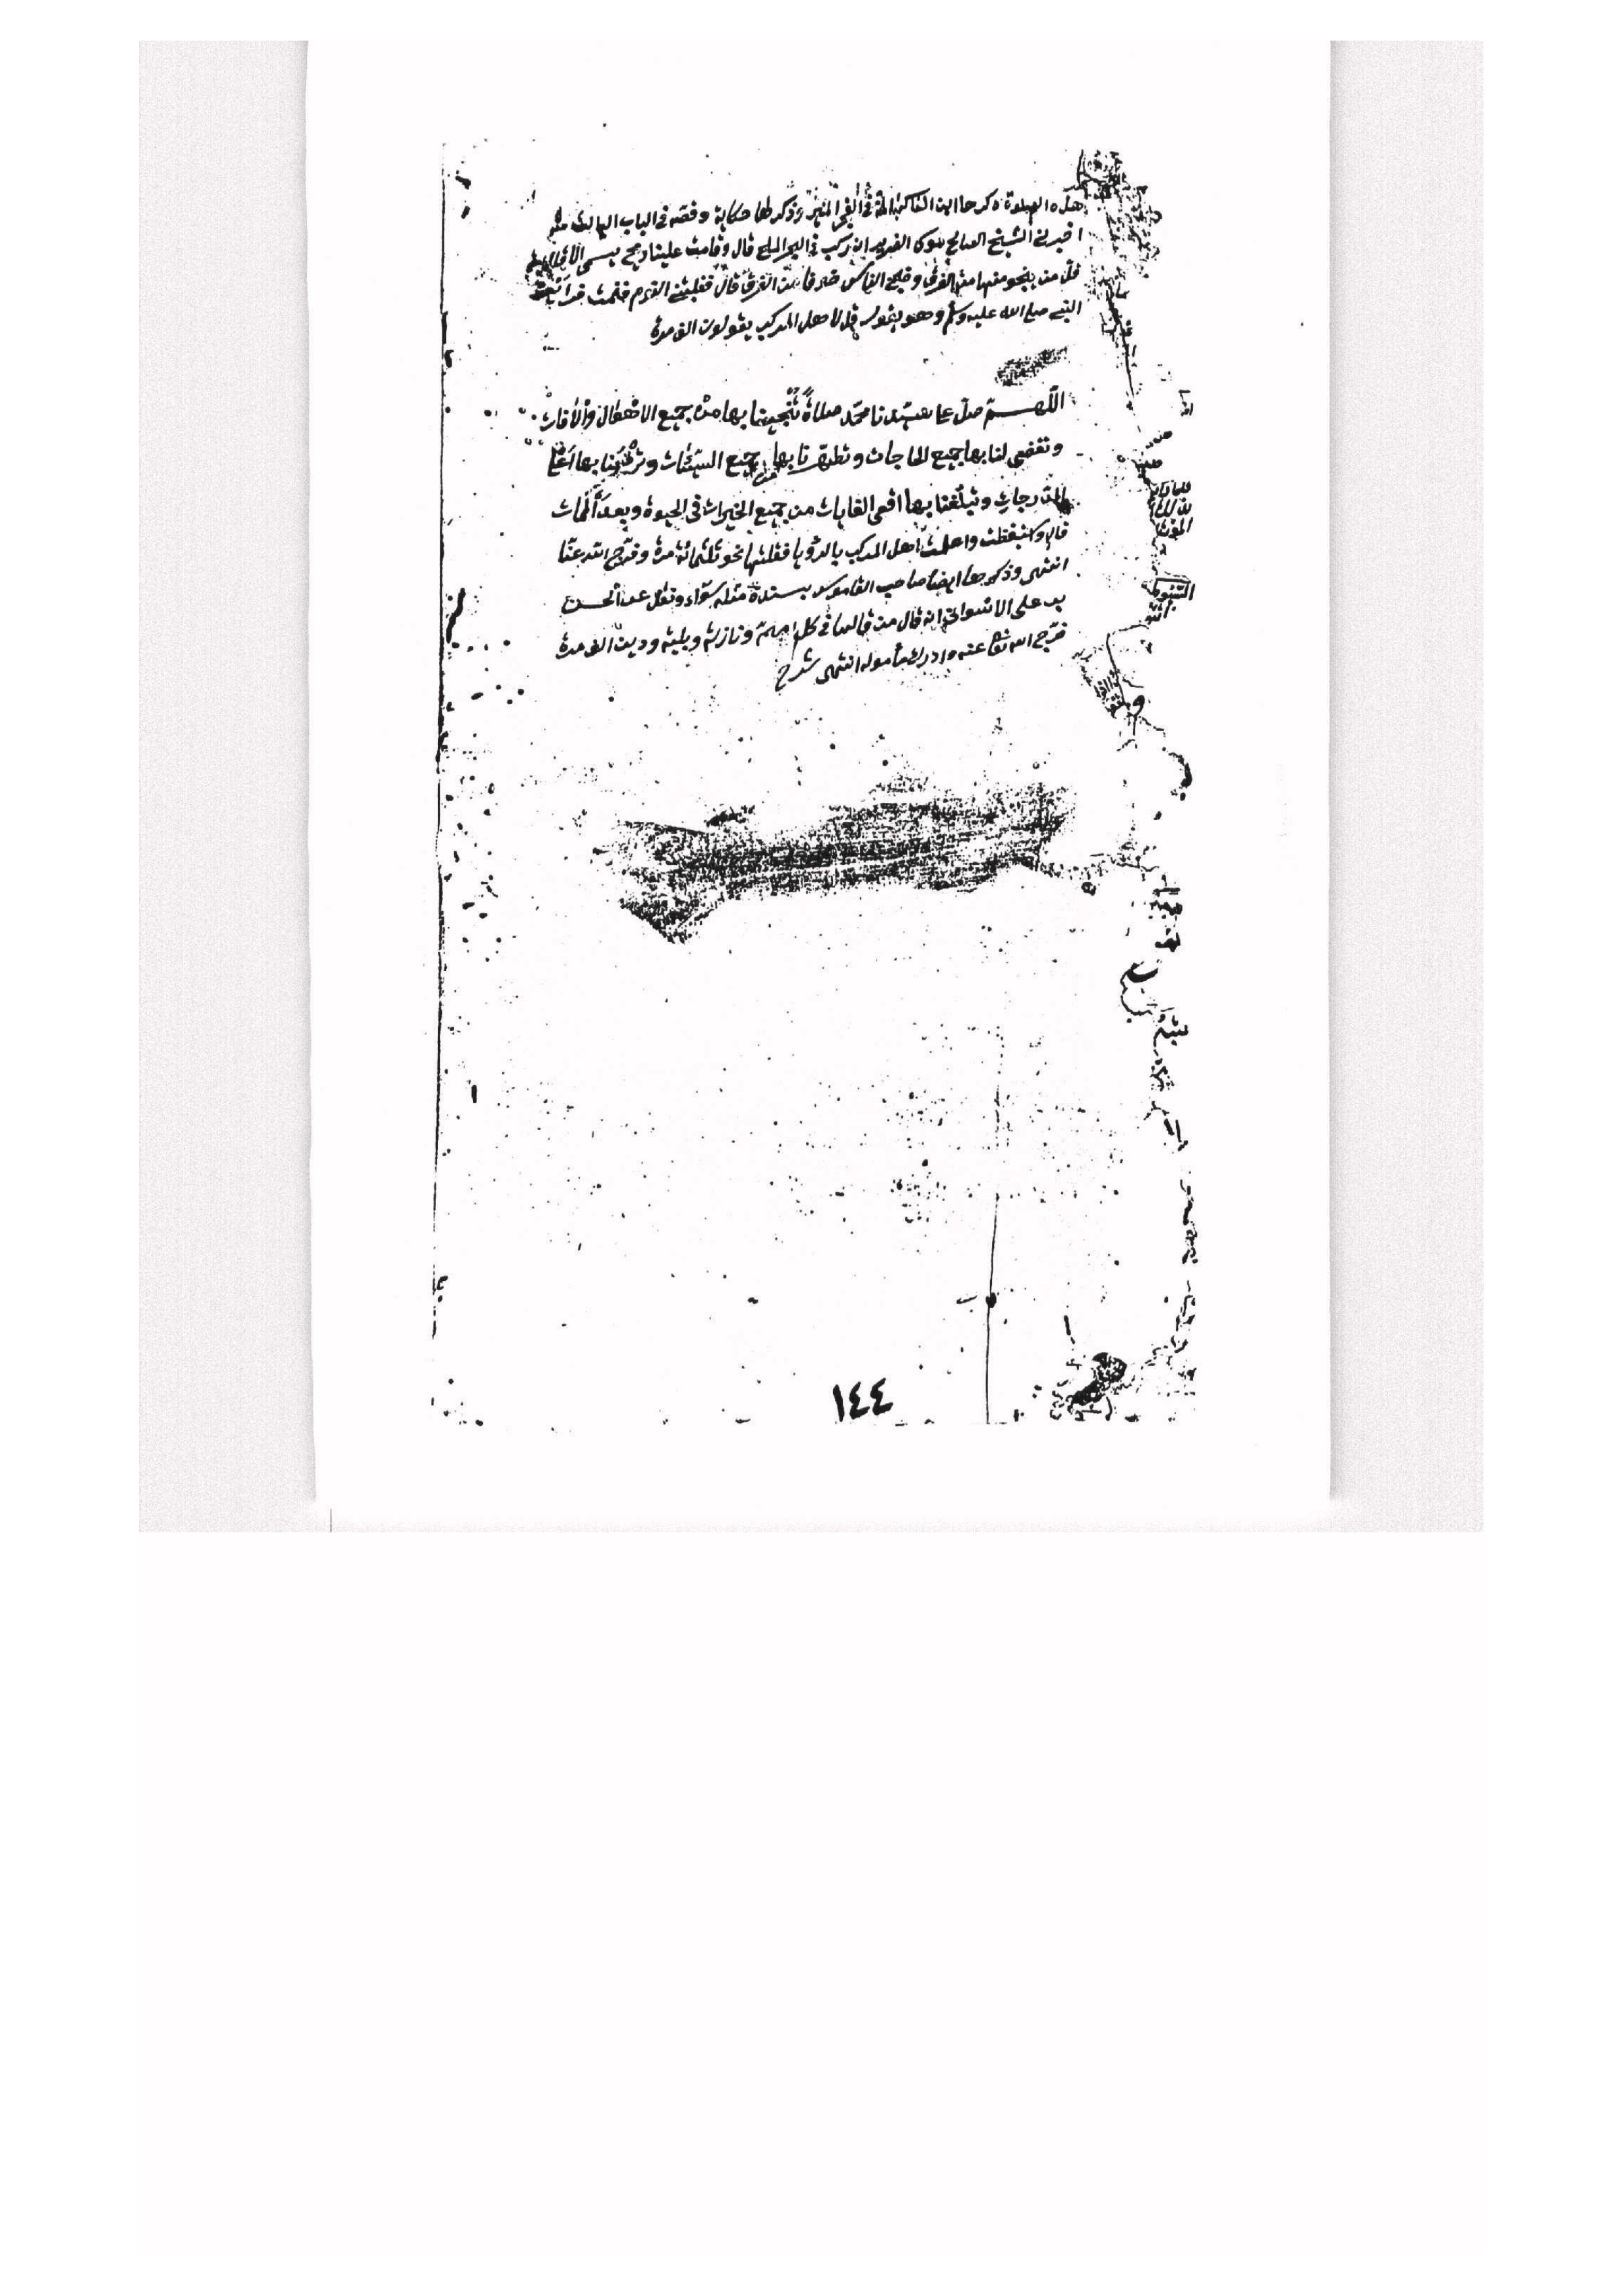 هذه الصلوة ذكرها ابن الفاكهاني في الفجر المنير وذكر لها حكاية وقصة في الباب الثالث منه
اخبرني الشيخ الصالح موسى الضرير انه ركب في البحر الملح قال وقامت علينا ريح يسمى الاقلابية
قل من ينجو منها من الغرق وضج الناس خوفا من الغرق قال فغلبتني النوم فنمت فرأيت
النبي صلى الله عليه وسلم وهو يقول قل لاهل المركب يقولون الف مرة
اللهم صل على سيدنا محمد صلاة تنجينا بها من جميع الاهوال والآفات
وتقضي لنا بها جميع الحاجات وتطهرنا بها من جميع السيئات وترفعنا بها اعلى
الدرجات وتبلغنا بها اقصى الغايات من جميع الخيرات في الحيوة وبعد الممات
قال واستيقظت واعلمت اهل المركب بالرؤيا فقلتها نحو ثلثمائة مرة وفرج الله عنا
انتهى وذكرها ايضا صاحب القاموس بسنده مثله سواء ونقل عن الحسن
بن على الاسواني انه قال من قالها في كل مهم ونازلة وبلية ودين الف مرة
فرج الله تعا عنه وادرك مأموله انتهى شرح
١٤٤